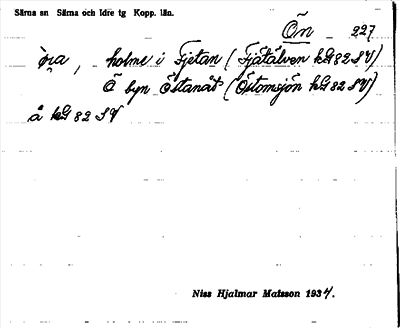 Särna sn Särna och Idre tg Kopp. län.
Ön 227
holme i Fjetan (Fjätälven kbl 82 SV)
Å byn Östanåt (Östomsjön kbl 82 SV)
å kbl 82 SV
Niss Hjalmar Matsson 1934.